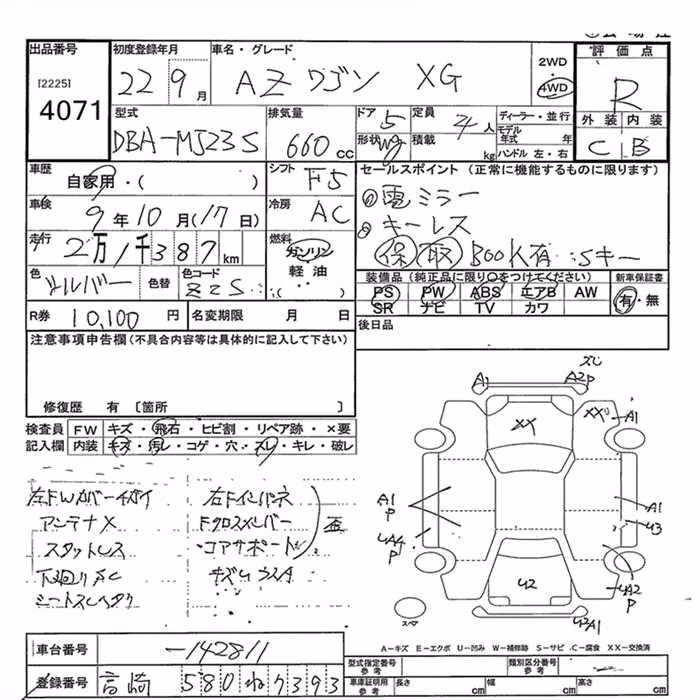 出品番号 初度登録年月 車名・グレード 2WD 評価点
[2225] 22 9月 AZワゴン XG 4WD R
4071
型式 排気量 ドア 5 定員 4人 ディーラー・並行 外装 内装
DBA-MJ23S 660cc 形状 wg 積載 kg モデル年式 年 C B
ハンドル 左・右
車歴 シフト セールスポイント (正常に機能するものに限ります)
自家用・( ) F5 電ミラー
車検 冷房 キーレス
9年10月(17日) AC 保 取 有 Sキー
走行 燃料 装備品(純正品に限り○をつけてください) 新車保証書
2万1千387km ガソリン PS PW ABS エアB AW 有・無
色 色替 色コード 軽油 SR ナビ TV カワ
シルバー Z2S ・( )
R券 10,100円 名変期限 月 日 後日品
注意事項申告欄(不具合内容等は具体的に記入して下さい)
修復歴 有 〔箇所 〕
A1 A2P
XX XX A1
検査員 FW キズ・飛石・ヒビ割・リペア跡・×要
記入欄 内装 キズ・汚レ・コゲ・穴・スレ・キレ・破レ
左FWカバー 左Fインパネ
アンテナX Fクロスメンバー 歪
スタットレス コアサポート
下廻り キズ
A1 P A1
A4 P U3
U2 A2 P
スペア
A-キズ E-エクボ U-凹み W-補修跡 S-サビ C-腐食 XX-交換済
車台番号 -142811
型式指定番号 参考 類別区分番号 参考
登録番号 高崎 580 ね 7393 車庫証明用 参考 長さ cm 幅 cm 高さ cm